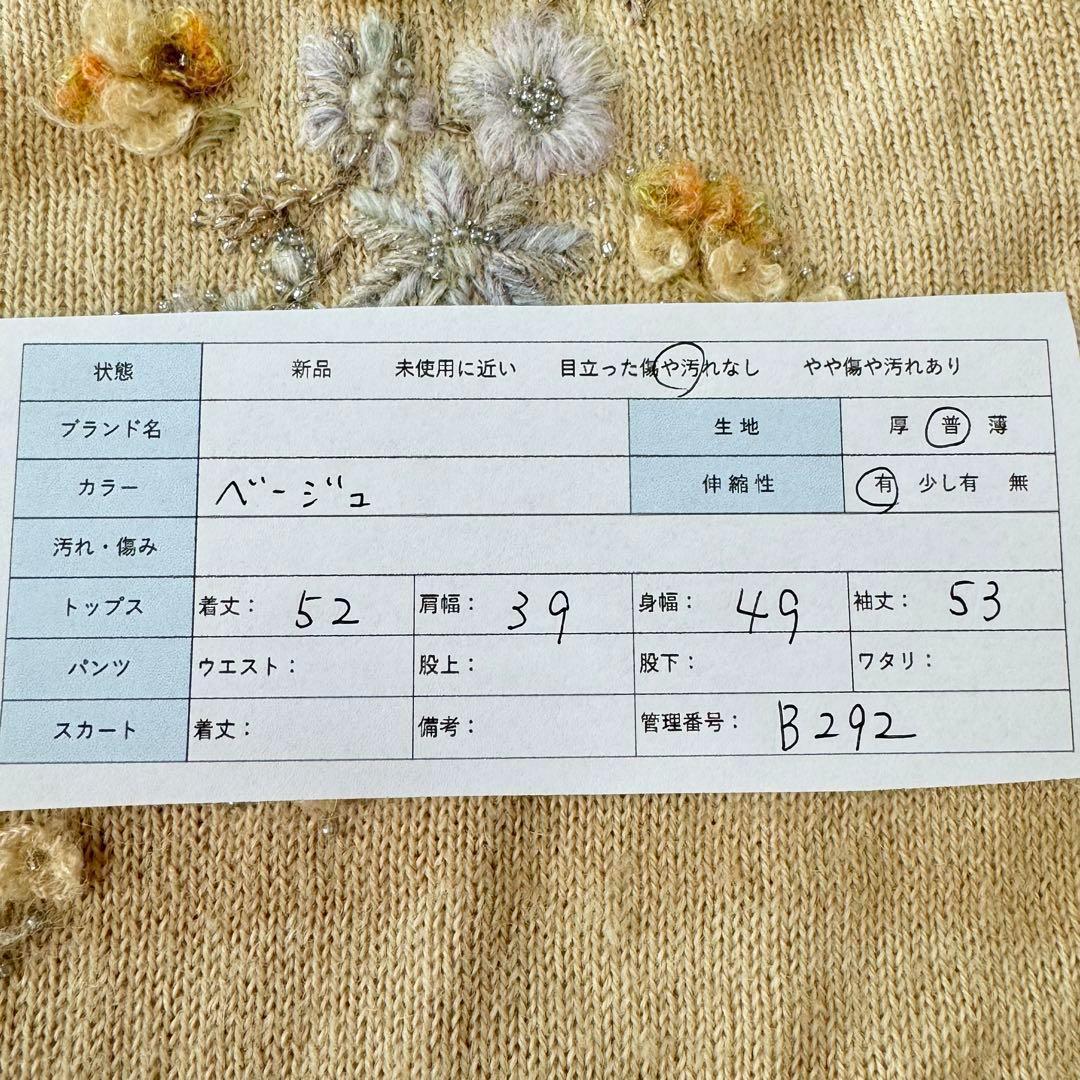 状態 新品 未使用に近い 目立った傷や汚れなし やや傷や汚れあり
ブランド名 生地 厚 普 薄
カラー ベージュ 伸縮性 有 少し有 無
汚れ・傷み
トップス 着丈: 52 肩幅: 39 身幅: 49 袖丈: 53
パンツ ウエスト: 股上: 股下: ワタリ:
スカート 着丈: 備考: 管理番号: B292